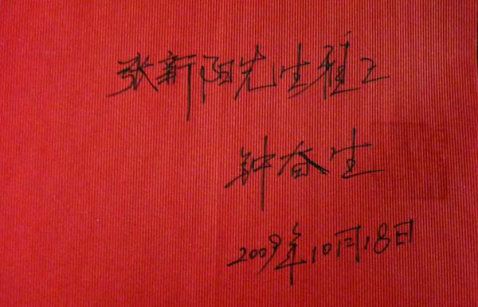 张新阳先生雅正
钟奋生
2009年10月18日